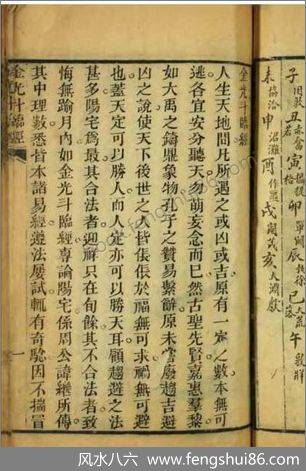 子 困敦 丑 赤奮若 寅 攝提格 卯 單閼 辰 執徐 巳 大荒落 午 敦牂
未 協洽 申 涒灘 酉 作噩 戌 閹茂 亥 大淵獻
金光斗臨經
人生天地間凡所遇之或凶或吉原有一定之數本無可
逃各宜安分聽天勿萌妄念而已然古聖先賢嘉惠羣黎
如大禹之鑄鼎象物孔子之贊易繫辭原未嘗廢趨吉避
凶之說使天下後世之人皆倀倀於福無可求禍無可避
也蓋天定可以勝人而人定亦可以勝天耳顧趨避之法
甚多陽宅為最其合法者迎祥只在旬餘其不合法者致
悔無踰月內如金光斗臨經專論陽宅係周公諱繼所傳
其中理數悉皆本諸易經遵法屢試輒有奇驗因不揣冒
金光斗臨經 一
风水八六 www.fengshui86.com